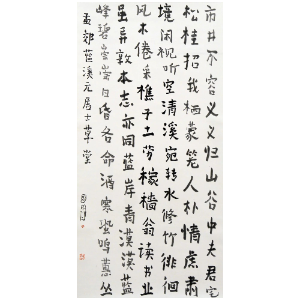 市井不容义义归山谷中夫君宅
松桂招我栖蒙笼人朴情虑肃
境闲视听空清溪宛转水修竹徘徊
风木倦采樵子土劳稼穑翁读书业
虽异敦本志亦同蓝岸青漠漠蓝
峰碧崇崇日昏各命酒寒蛩鸣蕙丛
孟郊蓝溪元居士草堂